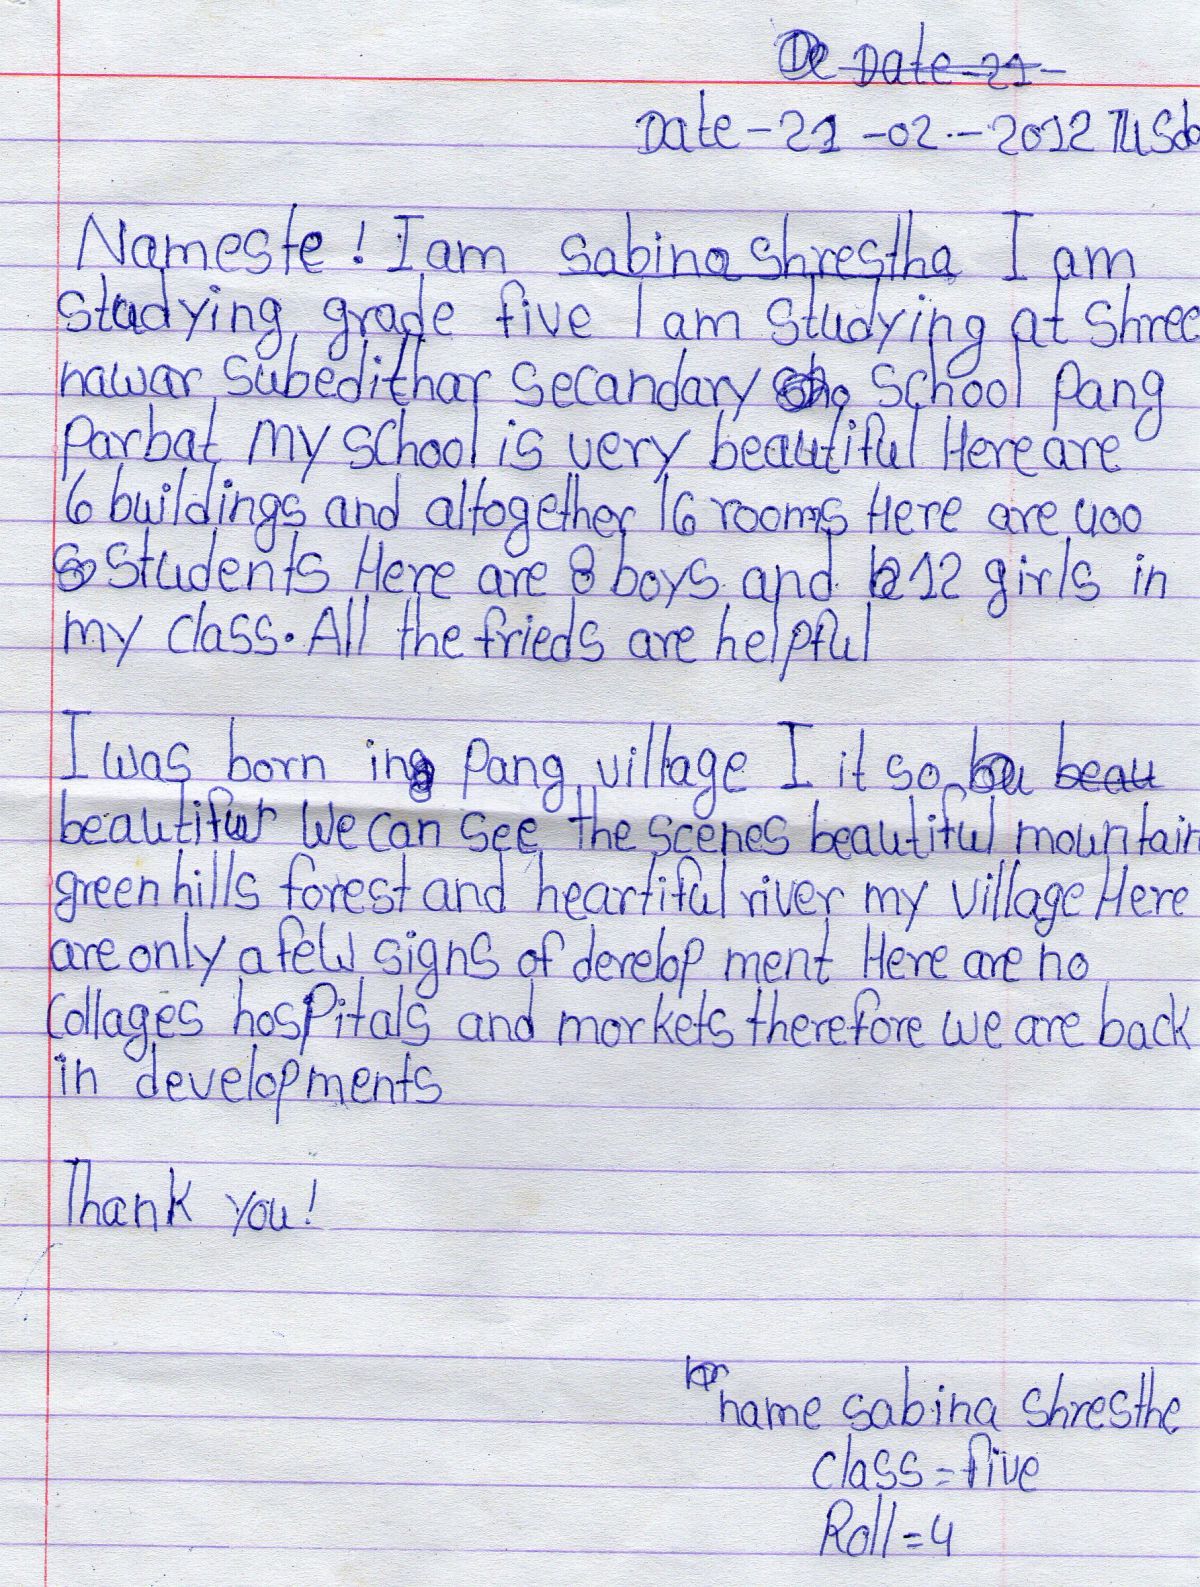 Date-21-
Date-21-02-2012 Tusda
Nameste! I am sabina shrestha I am
studying grade five I am studying at Shree
nawar subedithar secandary school pang
parbat my school is very beautiful Here are
6 buildings and altogether 16 rooms Here are 400
students Here are 8 boys and 12 girls in
my class. All the frieds are helpful
I was born in pang village I it so beau
beautiful We can see the scenes beautiful mountain
green hills forest and heartiful river my village Here
are only a few signs of develop ment Here are no
Collages hospitals and markets therefore we are back
in developments
Thank you!
name sabina shresthe
class = five
Roll = 4